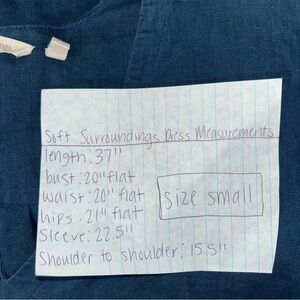 Soft Surroundings Dress Measurements
length: 37"
bust: 20" flat
waist: 20" flat
hips: 21" flat
sleeve: 22.5"
shoulder to shoulder: 15.5"
size small